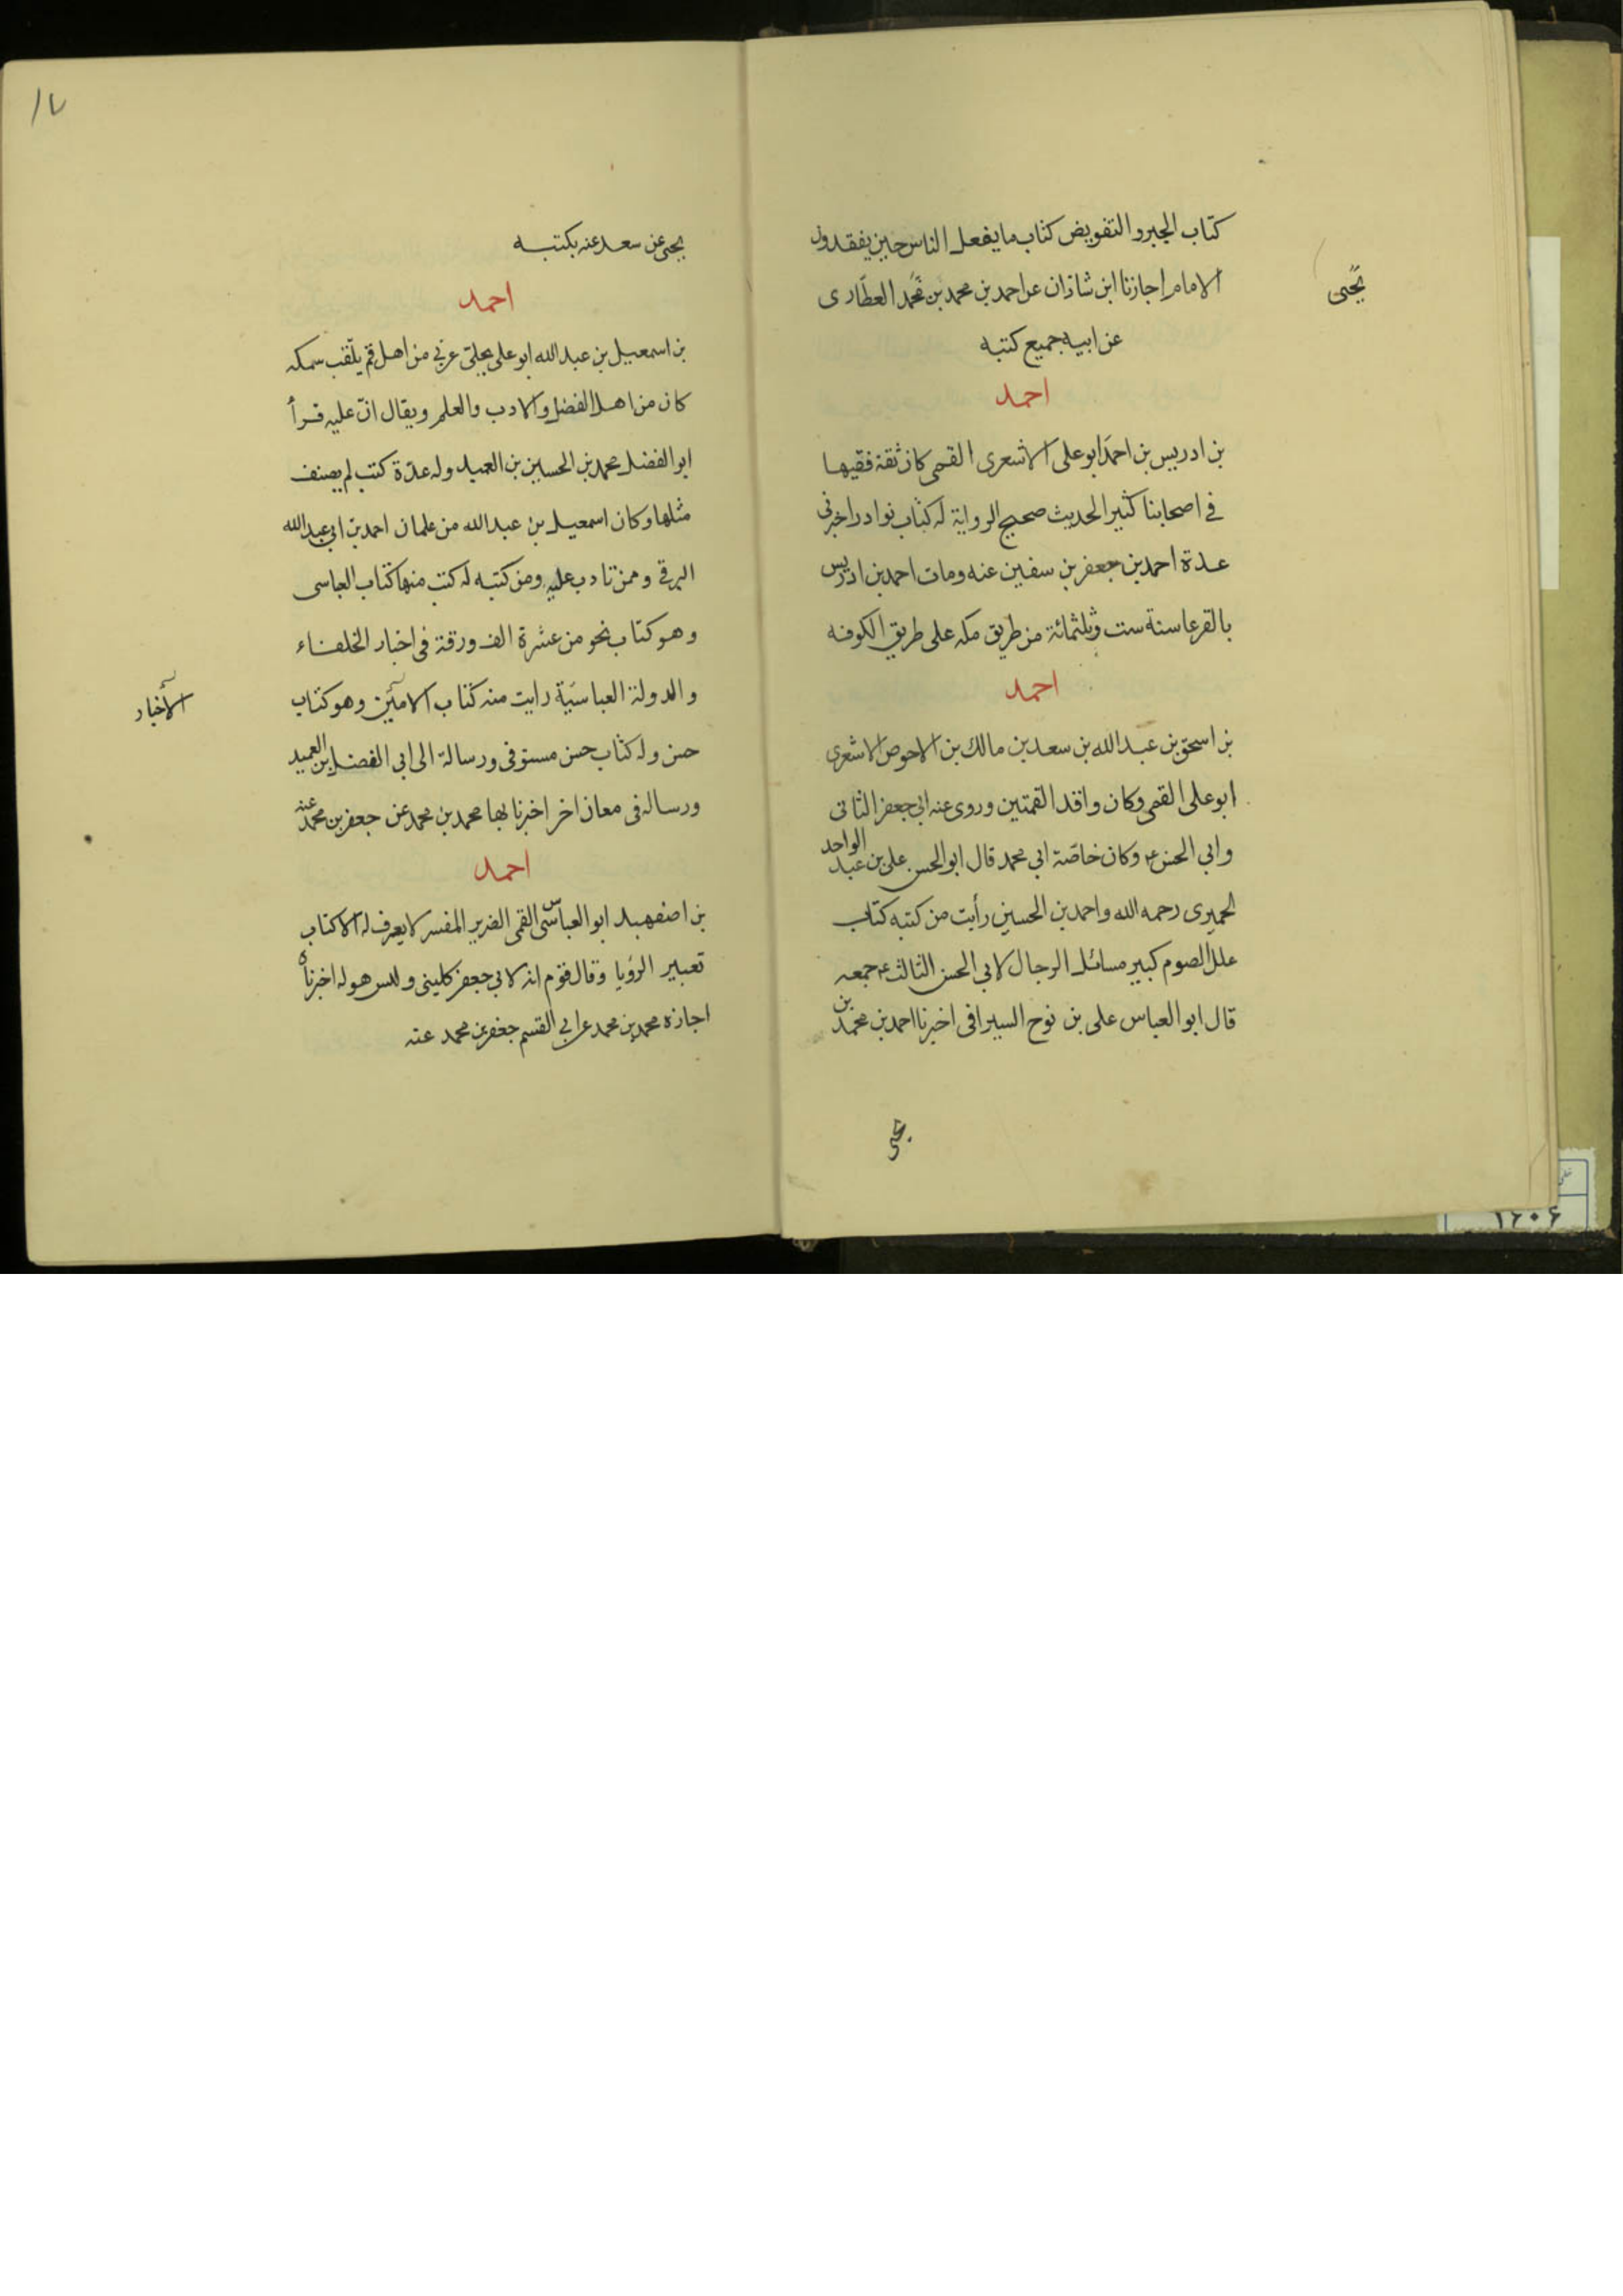 كتاب الجبر والتفويض كتاب ما يفعل الناس حين يفقدون
الامام اجازنا ابن شاذان عن احمد بن محمد بن محمد العطار ى
يحيى
عن ابيه جميع كتبه
احمد
بن ادريس بن احمد ابو على الاشعرى القمى كان ثقة فقيها
في اصحابنا كثير الحديث صحيح الرواية له كتاب نوادر اخبرنى
عدة احمد بن جعفر بن سفين عنه ومات احمد بن ادريس
بالقرعا سنة ست وثلثمائة من طريق مكه على طريق الكوفه
احمد
بن اسحق بن عبد الله بن سعد بن مالك بن الاحوص الاشعرى
ابو على القمى وكان وافد القمتين وروى عنه ابي جعفر الثانى
وابي الحسن ع وكان خاصة ابي محمد قال ابو الحسن على بن عبد الواحد
الحميرى رحمه الله واحمد بن الحسين رأيت من كتبه كتاب
علل الصوم كبير مسائل الرجال لابي الحسن الثالث ع جمعه
قال ابو العباس على بن نوح السيرافى اخبرنا احمد بن محمد بن
يحيى
١٧
يحيى عن سعد عنه بكتبه
احمد
بن اسمعيل بن عبد الله ابو على بجلى عربي من اهل قم يلقب سمكه
كان من اهل الفضل والادب والعلم ويقال ان عليه قرأ
ابو الفضل محمد بن الحسين بن العميد وله عدة كتب لم يصنف
مثلها وكان اسمعيل بن عبد الله من علمان احمد بن ابي عبد الله
البرقي وممن تادب عليه ومن كتبه له كتب منها كتاب العباسى
وهو كتاب نحو من عشرة الف ورقة في اخبار الخلفاء
والدولة العباسية رايت منه كتاب الامين وهو كتاب
الاخبار
حسن وله كتاب حسن مستوفى ورسالة الى ابى الفضل بن العميد
ورساله فى معان اخر اخبرنا بها محمد بن محمد عن جعفر بن محمد عنه
احمد
بن اصفهبد ابو العباس القمى الضرير المفسر لا يعرف له الا كتاب
تعبير الرؤيا وقال قوم انه لابي جعفر كلينى وليس هو له اخبرناه
اجازه محمد بن محمد عن ابي القسم جعفر بن محمد عنه
١٢٠۶